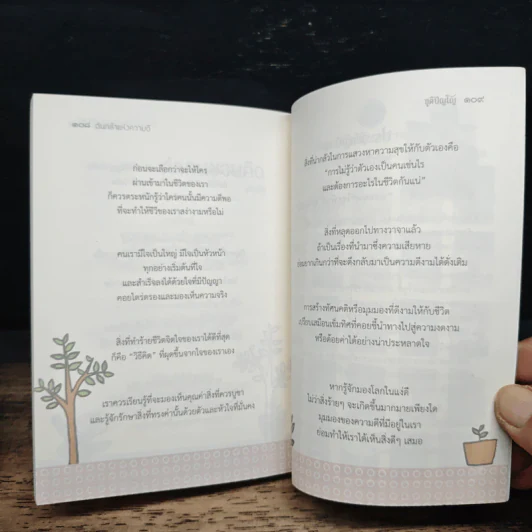 ๑๐๘ ต้นกล้าแห่งความดี
ก่อนจะเลือกว่าจะให้ใคร
ผ่านเข้ามาในชีวิตของเรา
ก็ควรตระหนักรู้ว่าใครคนนั้นมีความดีพอ
ที่จะทำให้ชีวีของเราสง่างามหรือไม่
คนเรามีใจเป็นใหญ่ มีใจเป็นหัวหน้า
ทุกอย่างเริ่มต้นที่ใจ
และสำเร็จลงได้ด้วยใจที่มีปัญญา
คอยไตร่ตรองและมองเห็นความจริง
สิ่งที่ทำร้ายชีวิตจิตใจของเราได้ดีที่สุด
ก็คือ "วิธีคิด" ที่ผุดขึ้นจากใจของเราเอง
เราควรเรียนรู้ที่จะมองเห็นคุณค่าสิ่งที่ควรบูชา
และรู้จักรักษาสิ่งที่ทรงค่านั้นด้วยตัวและหัวใจที่มั่นคง
ชุติปัญโญ ๑๐๙
สิ่งที่น่ากลัวในการแสวงหาความสุขให้กับตัวเองคือ
"การไม่รู้ว่าตัวเองเป็นคนเช่นไร
และต้องการอะไรในชีวิตกันแน่"
สิ่งที่หลุดออกไปทางวาจาแล้ว
ถ้าเป็นเรื่องที่นำมาซึ่งความเสียหาย
ยากเกินกว่าที่จะดึงกลับมาเป็นความดีงามได้ดั่งเดิม
การสร้างทัศนคติหรือมุมมองที่ดีงามให้กับชีวิต
เปรียบเสมือนเข็มทิศที่คอยชี้นำทางไปสู่ความงดงาม
หรือด้อยค่าได้อย่างน่าประหลาดใจ
หากรู้จักมองโลกในแง่ดี
ไม่ว่าสิ่งร้ายๆ จะเกิดขึ้นมากมายเพียงใด
มุมมองของความดีที่มีอยู่ในเรา
ย่อมทำให้เราได้เห็นสิ่งดีๆ เสมอ